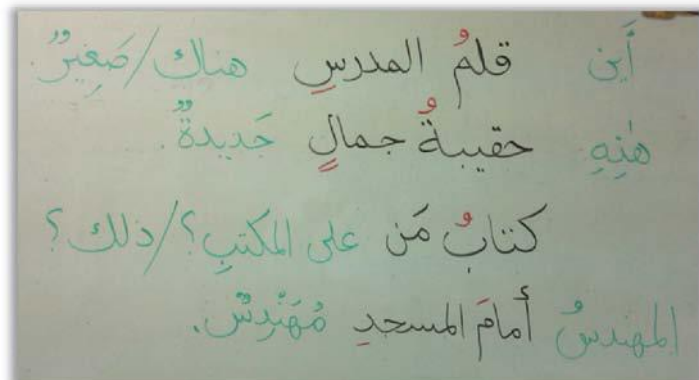 أَين قلمُ المدرسِ هناك/صَغِيرٌ.
هٰذِهِ حقيبةُ جمالٍ جَديدةٌ.
كتابُ مَن على المكتبِ؟/ذلك؟
المهندسُ أمامَ المسجدِ مُهَنْدِسٌ.